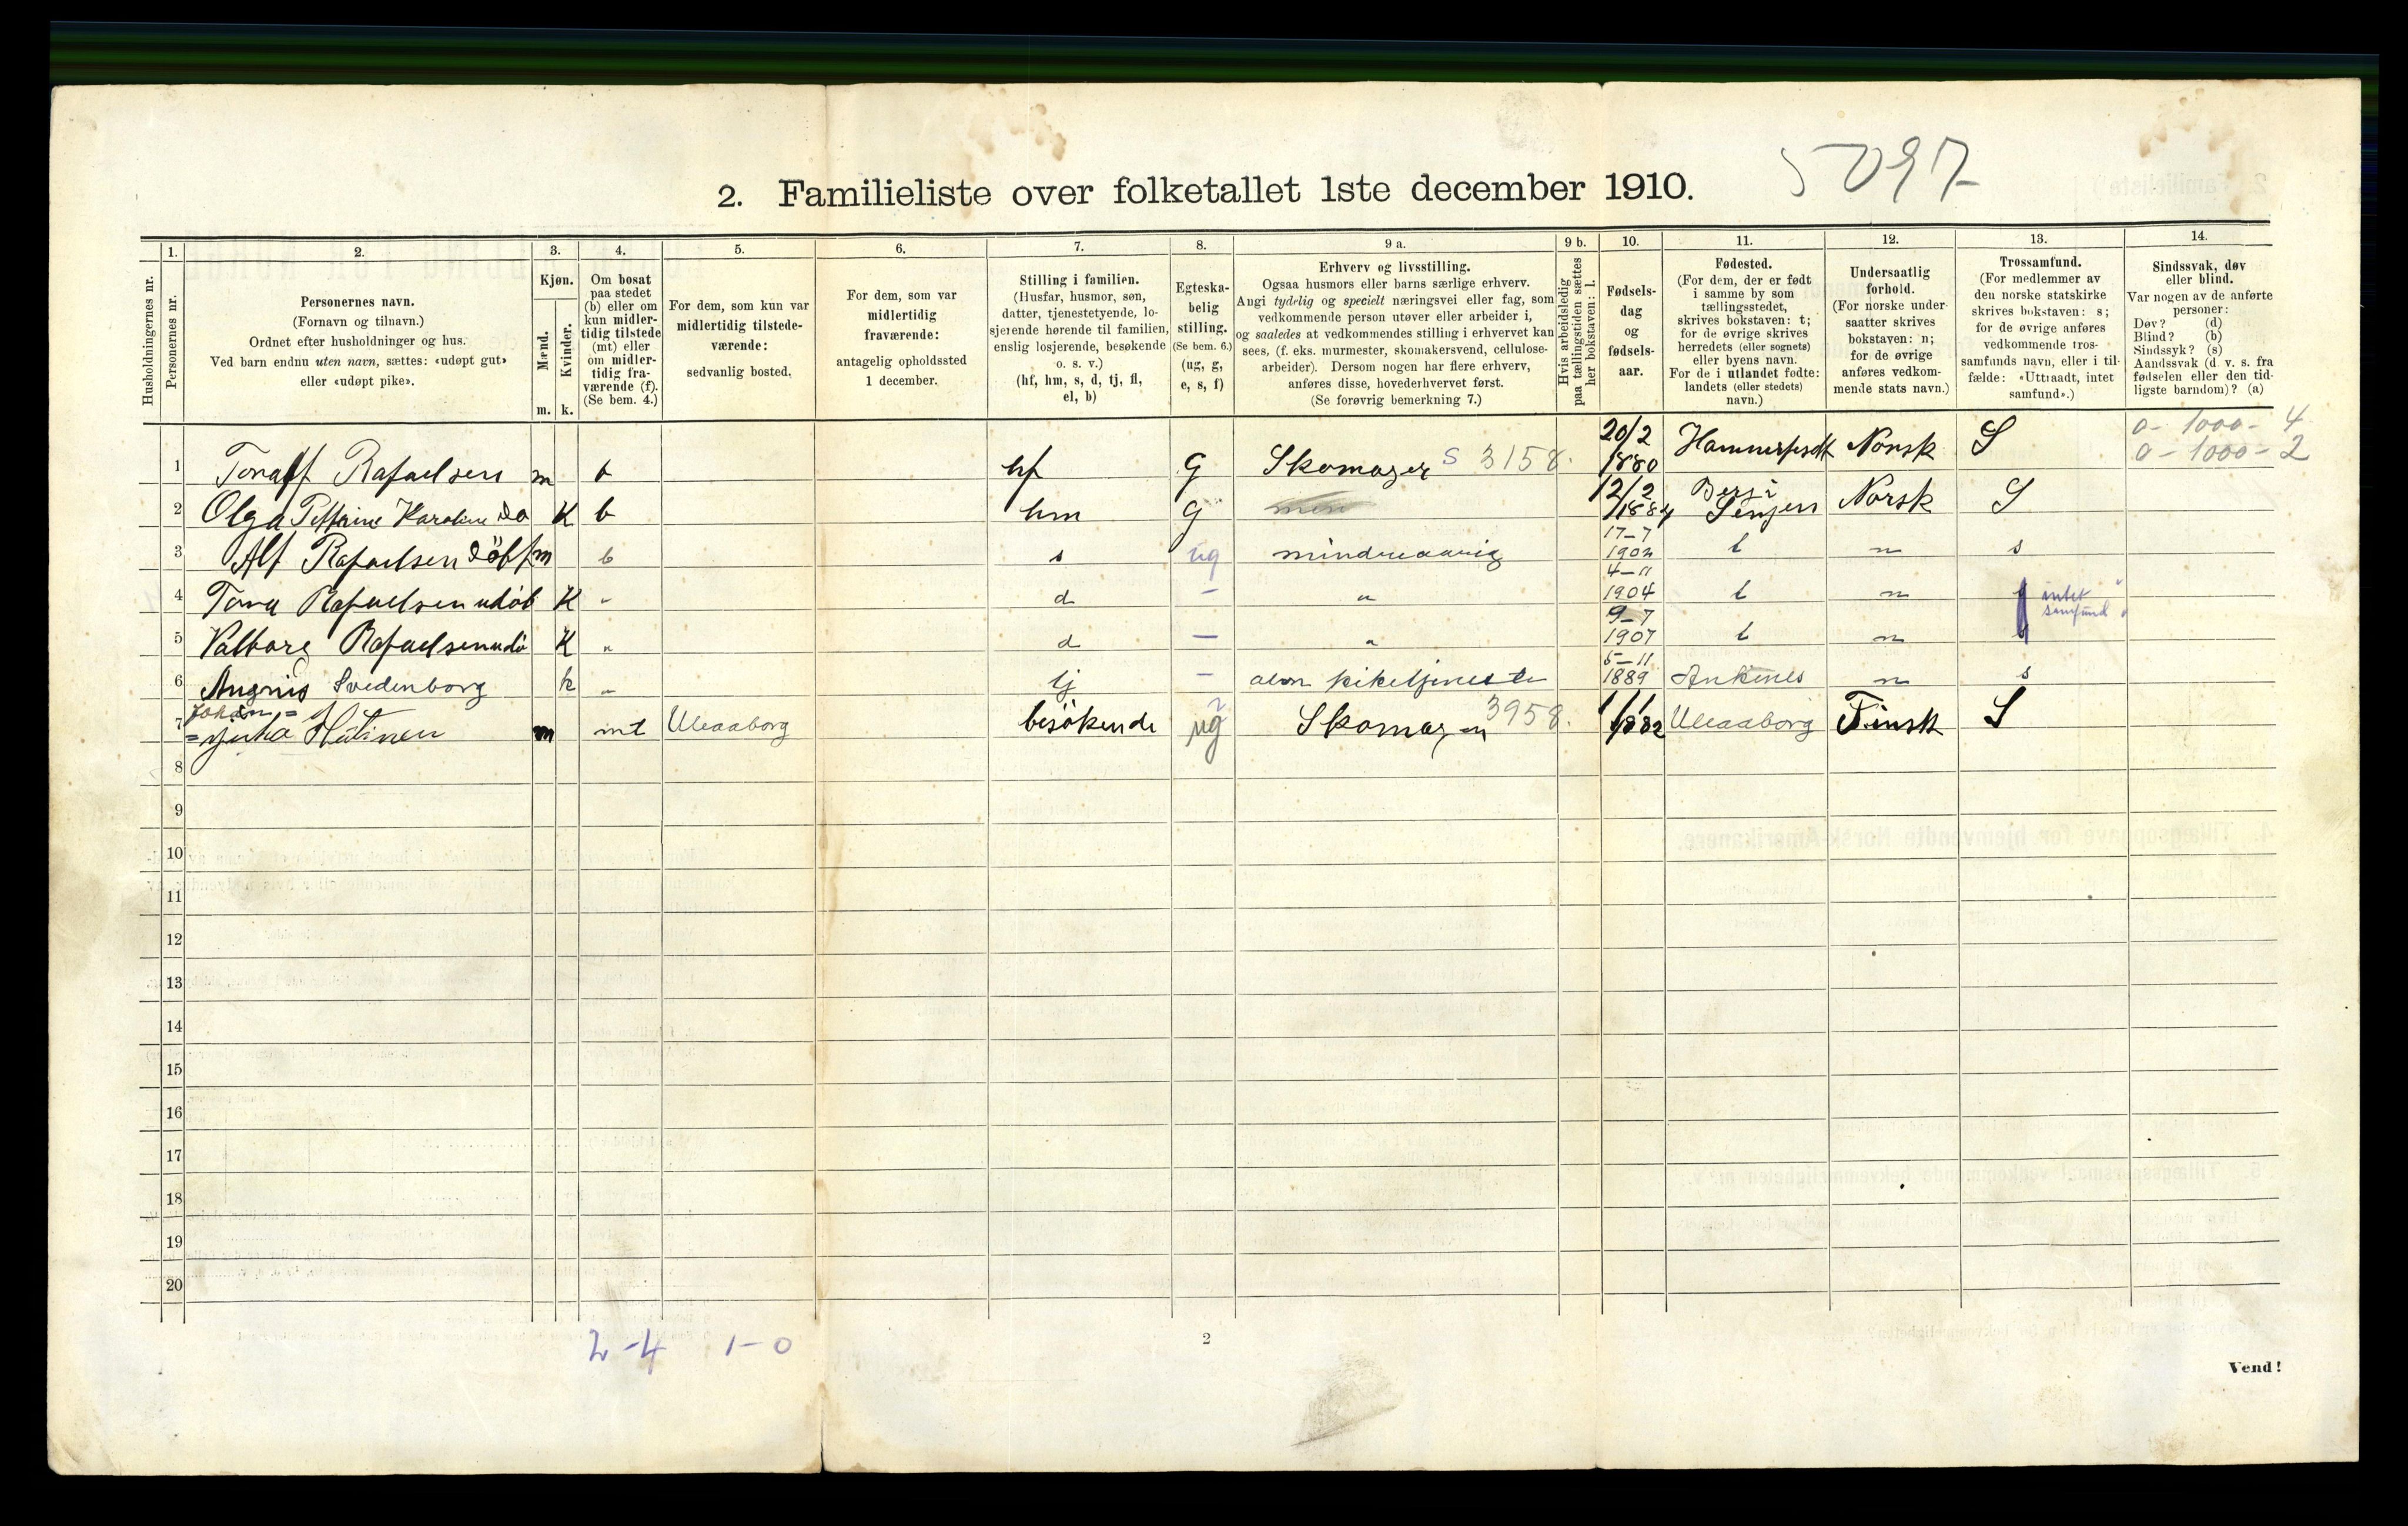 5097
2. Familieliste over folketallet 1ste december 1910.
Husholdningernes nr.
1. Personernes nr.
2. Personernes navn.
(Fornavn og tilnavn.)
Ordnet efter husholdninger og hus.
Ved barn endnu uten navn, sættes: «udøpt gut»
eller «udøpt pike».
3. Kjøn.
Mænd. m.
Kvinder. k.
4. Om bosat
paa stedet
(b) eller om
kun midler-
tidig tilstede
(mt) eller
om midler-
tidig fra-
værende (f).
(Se bem. 4.)
5. For dem, som kun var
midlertidig tilstede-
værende:
sedvanlig bosted.
6. For dem, som var
midlertidig
fraværende:
antagelig opholdssted
1 december.
7. Stilling i familien.
(Husfar, husmor, søn,
datter, tjenestetyende, lo-
sjerende hørende til familien,
enslig losjerende, besøkende
o. s. v.)
(hf, hm, s, d, tj, fl,
el, b)
8. Egteska-
belig
stilling.
(Se bem. 6.)
(ug, g,
e, s, f)
9 a. Erhverv og livsstilling.
Ogsaa husmors eller barns særlige erhverv.
Angi tydelig og specielt næringsvei eller fag, som
vedkommende person utøver eller arbeider i,
og saaledes at vedkommendes stilling i erhvervet kan
sees, (f. eks. murmester, skomakersvend, cellulose-
arbeider). Dersom nogen har flere erhverv,
anføres disse, hovederhvervet først.
(Se forøvrig bemerkning 7.)
9 b. Hvis arbeidsledig
paa tællingstiden sættes
her bokstaven: l.
10. Fødsels-
dag
og
fødsels-
aar.
11. Fødested.
(For dem, der er født
i samme by som
tællingsstedet,
skrives bokstaven: t;
for de øvrige skrives
herredets (eller sognets)
eller byens navn.
For de i utlandet fødte:
landets (eller stedets)
navn.)
12. Undersaatlig
forhold.
(For norske under-
saatter skrives
bokstaven: n;
for de øvrige
anføres vedkom-
mende stats navn.)
13. Trossamfund.
(For medlemmer av
den norske statskirke
skrives bokstaven: s;
for de øvrige anføres
vedkommende tros-
samfunds navn, eller i til-
fælde: «Uttraadt, intet
samfund».)
14. Sindssvak, døv
eller blind.
Var nogen av de anførte
personer:
Døv? (d)
Blind? (b)
Sindssyk? (s)
Aandssvak (d. v. s. fra
fødselen eller den tid-
ligste barndom)? (a)
0 - 1000 - 4
0 - 1000 - 2
1 Toralf Rafaelsen m b hf G Skomager S 3158. 20/2 1880 Hammerfesdt Norsk S
2 Olga Karoline do K b hm G 12/2 1884 i Senjen Norsk S
3 Alf Rafaelsen m b s ug mindreaarig 17-7 1902 t n s
4 Tora Rafaelsen udöb K " d - " 4-11 1904 t n intet samfund
5 Valborg Rafaelsen udö K " d - " 9-7 1907 t n
6 Svedenborg k " tj - 5-11 1889 Ankenes n s
7 Johan = m mt Uleaaborg besökende ug Skomager 3958. 1/1 1882 Uleaaborg Finsk S
8
9
10
11
12
13
14
15
16
17
18
19
20
2-4 1-0
2
Vend!